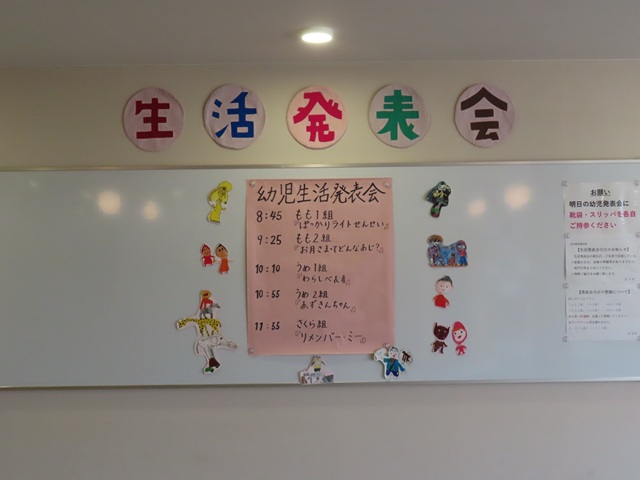 生活発表会
幼児生活発表会
8:45 もも1組
『ぽっかりライトせんせい』
9:25 もも2組
『お月さまってどんなあじ?』
10:10 うめ1組
『わらしべ長者』
10:55 うめ2組
『あずきんちゃん』
11:55 さくら組
『リメンバー・ミー』
お願い
明日の幼児発表会に
靴袋・スリッパを各自
ご持参ください